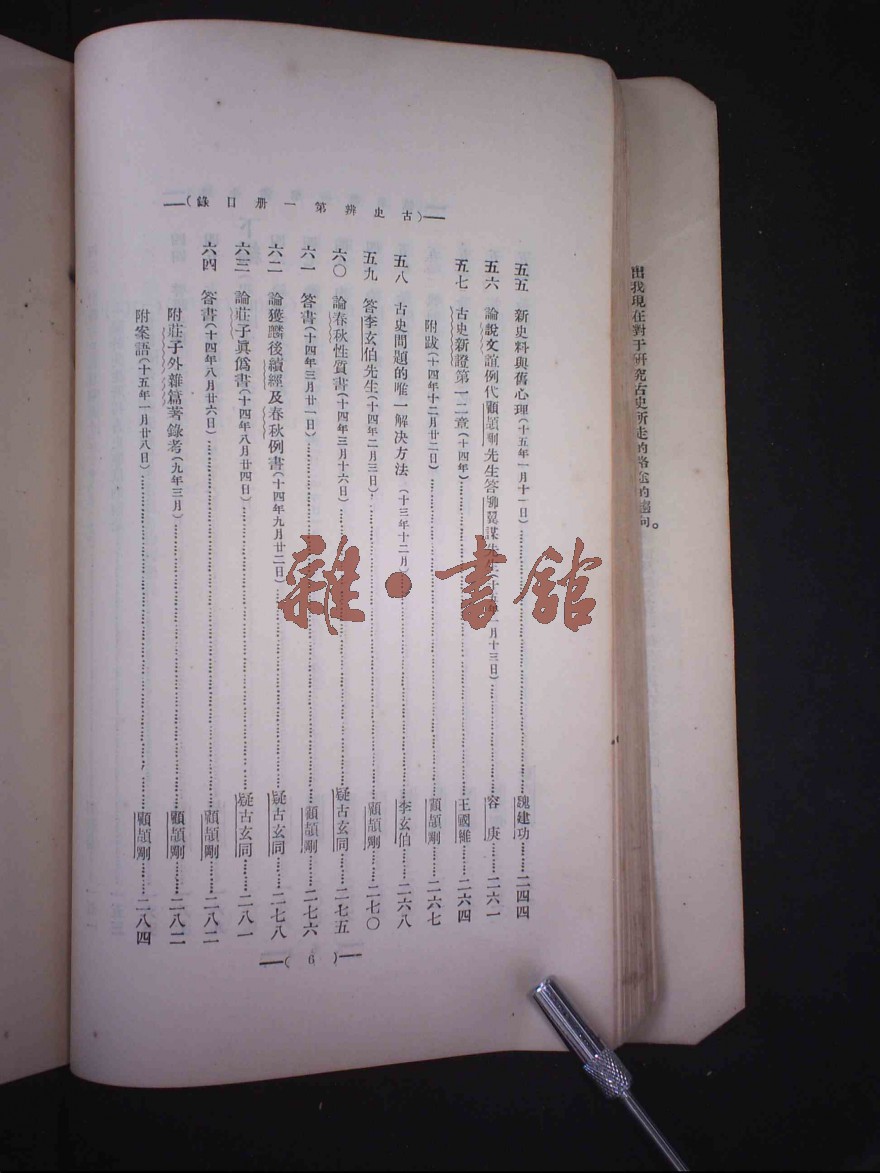 出我現在對于研究古史所走的路途的趨向。
（古史辨第一册目錄）
五五 新史料與舊心理（十五年一月十一日）……魏建功……二四四
五六 論說文誼例代顧頡剛先生答柳翼謀先生（十五年一月十三日）……容庚……二六一
五七 古史新證第一二章（十四年）……王國維……二六四
附跋（十四年十二月廿二日）……顧頡剛……二六七
五八 古史問題的唯一解决方法（十三年十二月）……李玄伯……二六八
五九 答李玄伯先生（十四年二月三日）……顧頡剛……二七〇
六〇 論春秋性質書（十四年三月十六日）……疑古玄同……二七五
六一 答書（十四年三月廿一日）……顧頡剛……二七六
六二 論獲麟後續經及春秋例書（十四年九月廿二日）……疑古玄同……二七八
六三 論莊子眞僞書（十四年八月廿四日）……疑古玄同……二八一
六四 答書（十四年八月廿六日）……顧頡剛……二八二
附莊子外雜篇著錄考（九年三月）……顧頡剛……二八二
附案語（十五年一月廿八日）……顧頡剛……二八四
（6）
雜·書館